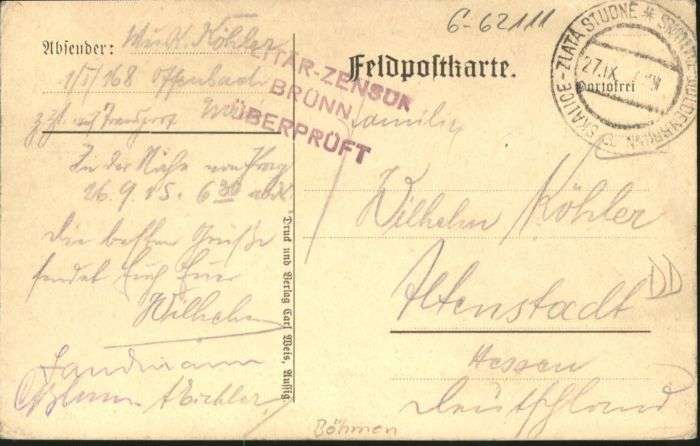 6-62111
Absender: Wilh. Köhler
1/I/168 Offenbach
z. Zt. auf Transport
In der Nähe von Prag
26.9.15. 6 30 abd.
Die besten Grüße
sendet Euch Euer
Wilhelm
Landmann
Eichler
MILITÄR-ZENSUR
BRÜNN
ÜBERPRÜFT
Feldpostkarte.
SKALICE-ZLATA STUDNE * SKALITZ-GOLDENBRUNN
27.IX.
Portofrei
Familie
Wilhelm Köhler
Altenstadt
Hessen
Deutschland
DD
Druck und Verlag Carl Weis, Aussig
Böhmen